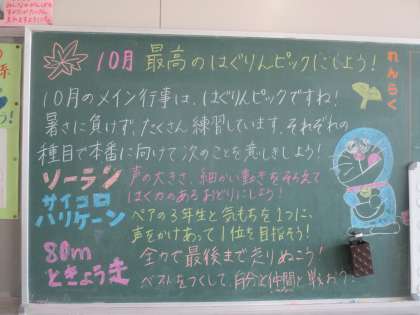 10月 最高のはぐりんピックにしよう!
れんらく
10月のメイン行事は、はぐりんピックですね!
暑さに負けず、たくさん練習しています。それぞれの
種目で本番に向けて次のことを意しきしよう!
ソーラン 声の大きさ、細かい動きをそろえて
はく力のあるおどりにしよう!
サイコロ
ハリケーン ペアの3年生と気もちを1つに、
声をかけあって1位を目指そう!
80m
ときょう走 全力で最後まで走りぬこう!
ベストをつくして、自分と仲間と戦おう。